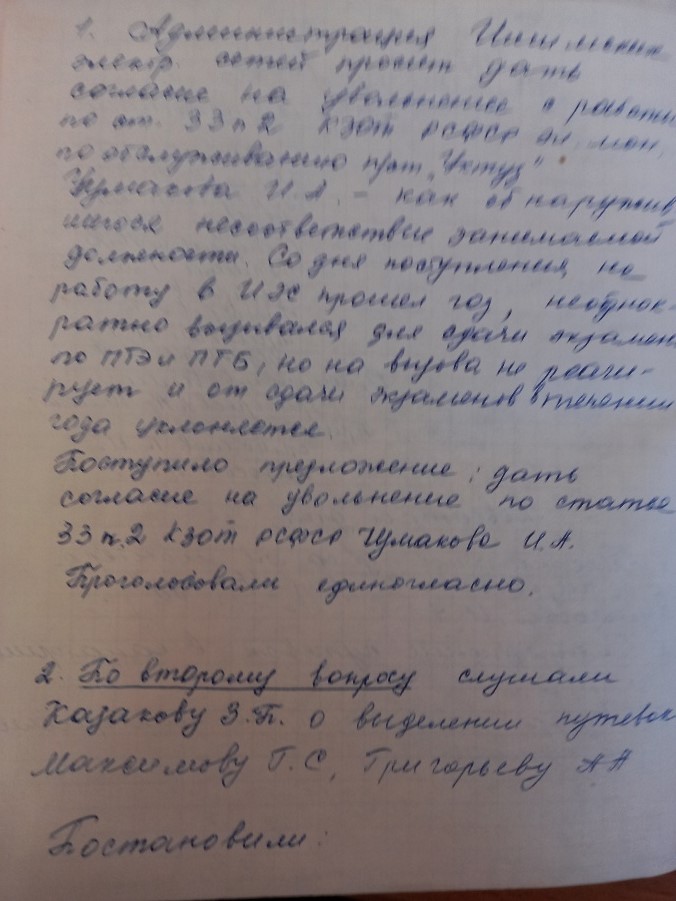 1. Администрация Ишимских
электр. сетей просит дать
согласие на увольнение с работы
по ст. 33 п 2 КЗОТ РСФСР эл. мон.
по обслуживанию п/ст "Уктуз"
Чумакова И.А. - как обнаружив
шегося несоответствие занимаемой
должности. Со дня поступления на
работу в ИЭС прошел год, неоднок-
ратно вызывался для сдачи экзамен
по ПТЭ и ПТБ, но на вызова не реаги-
рует и от сдачи экзаменов в течении
года уклоняется.
Поступило предложение: дать
согласие на увольнение по статье
33 п.2 КЗОТ РСФСР Чумакова И.А.
Проголосовали единогласно.
2. По второму вопросу слушали
Казакову З.П. о выделении путевок
Максимову Г.С, Григорьеву АА
Постановили: